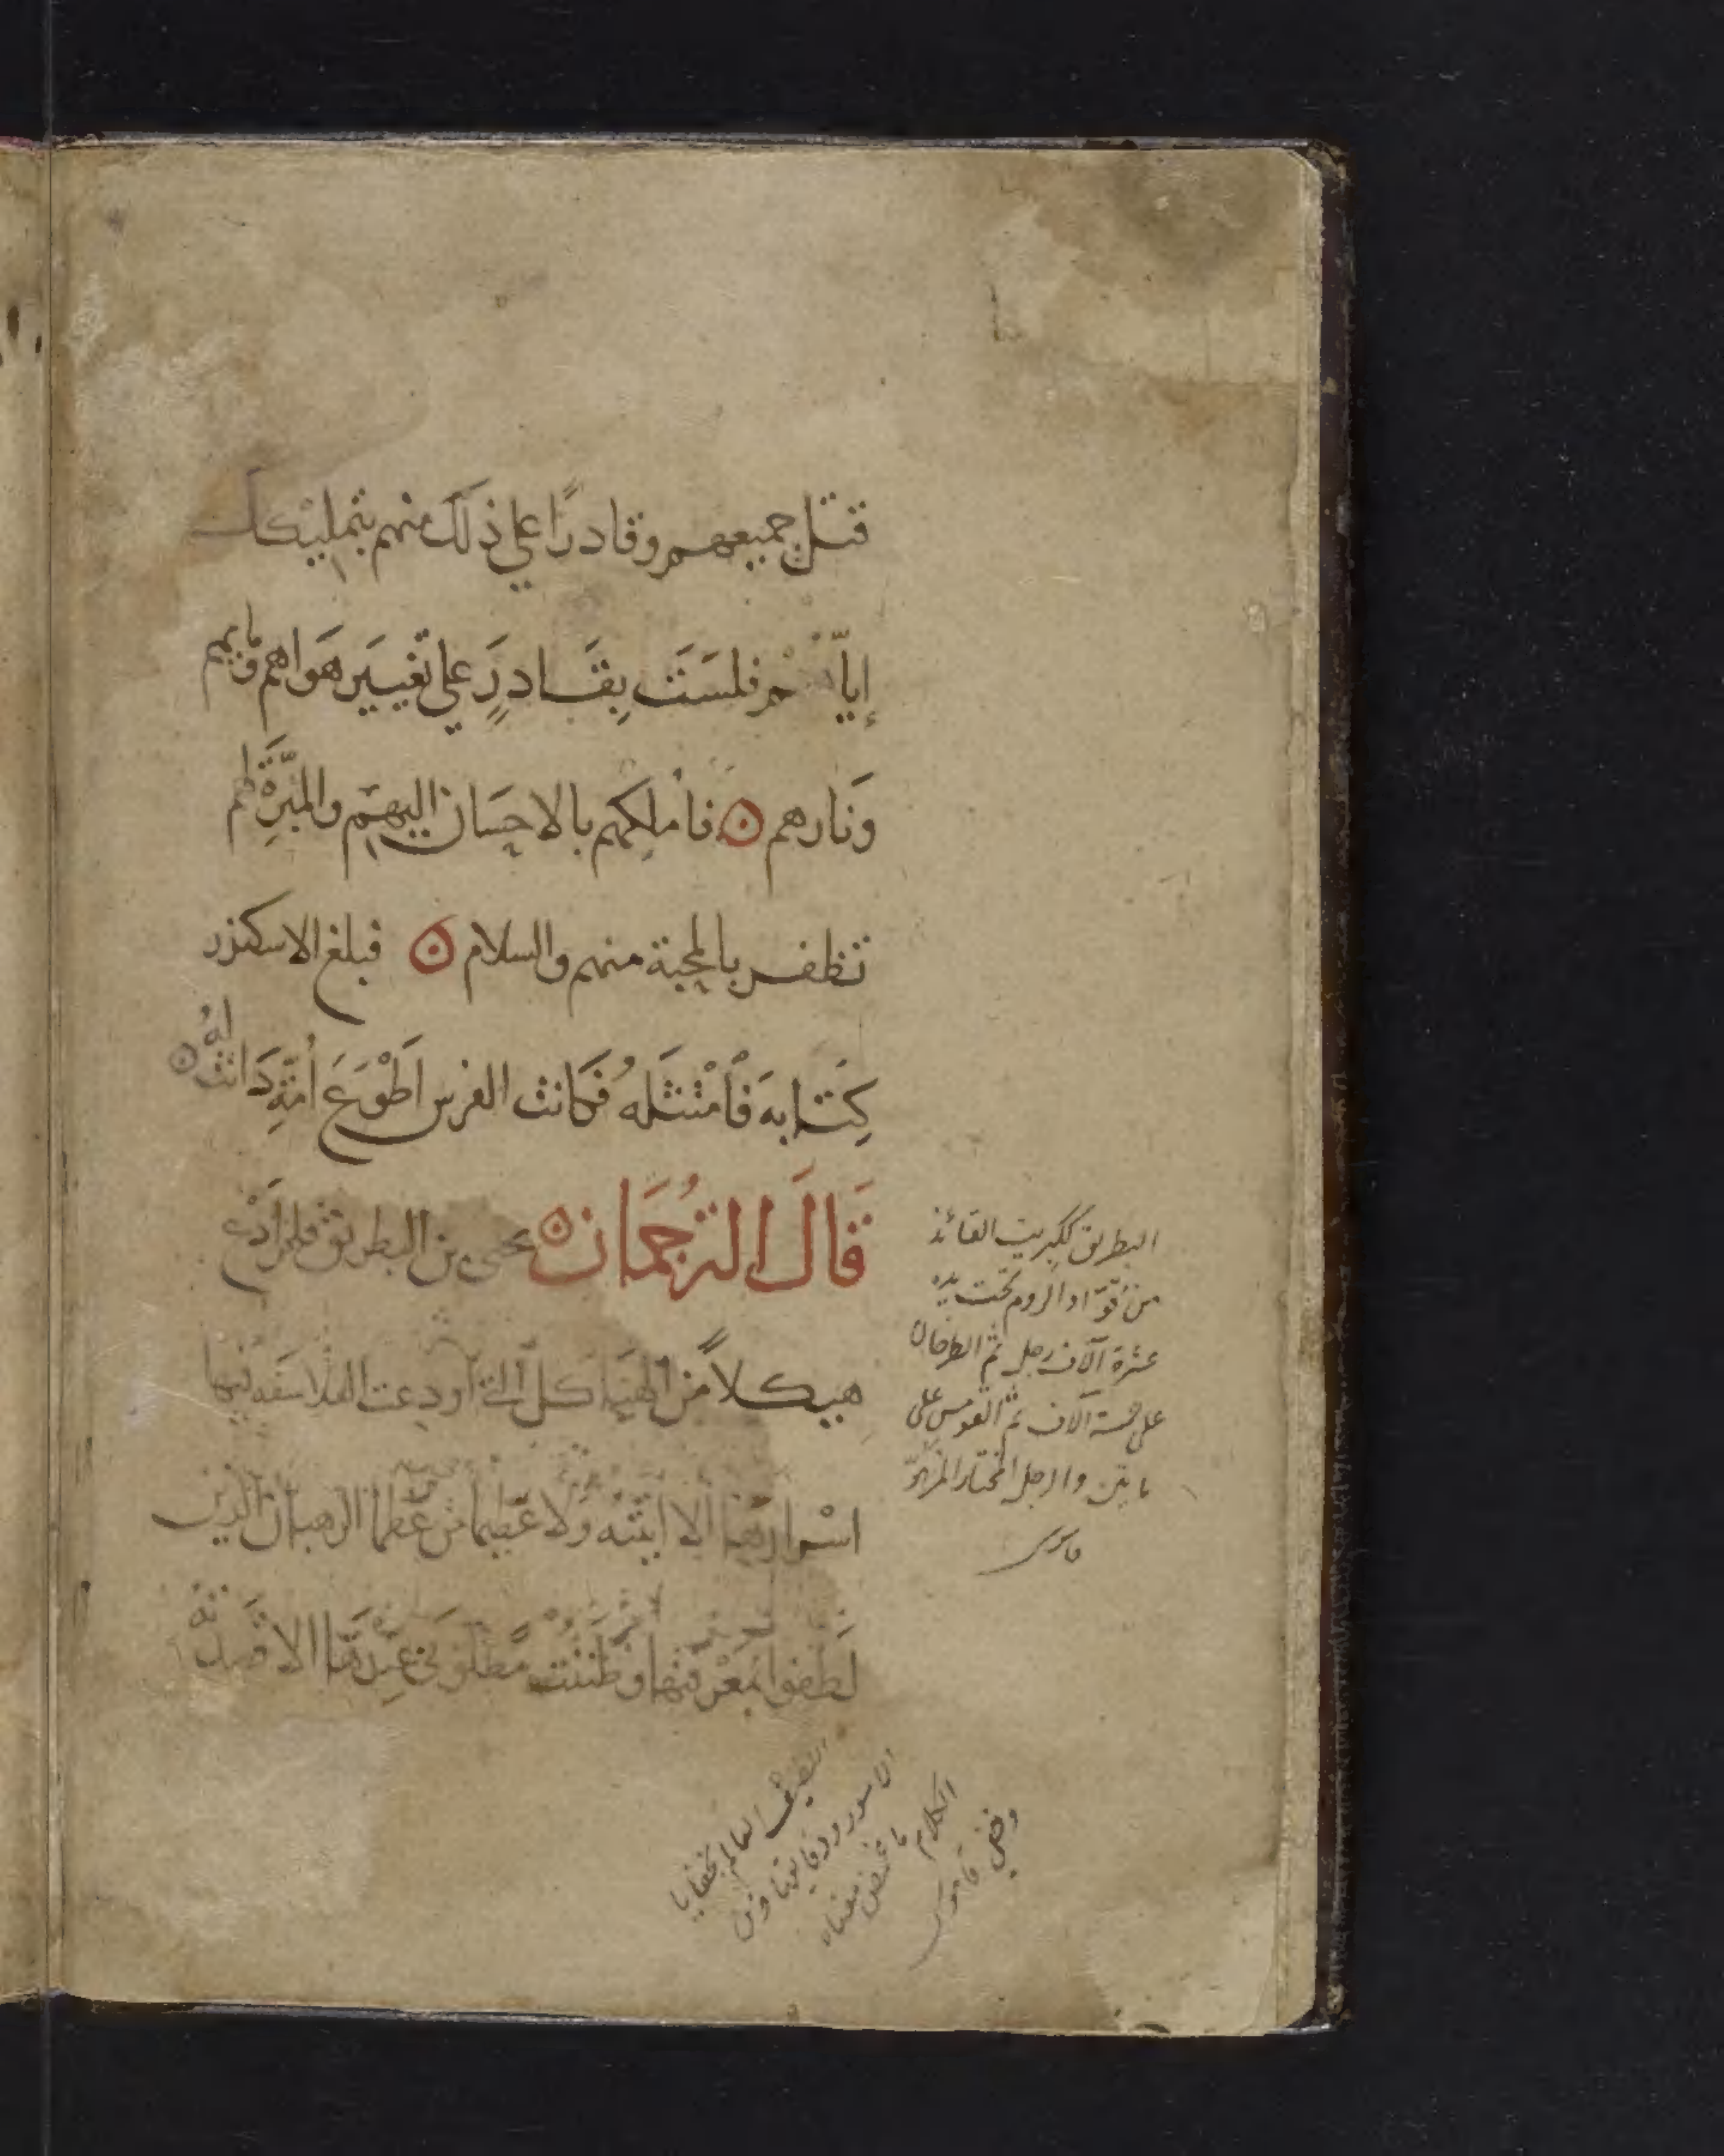 قتل جميعهم وقادرا على ذلك منهم بتمليكك
إياهم فلست بقادر على تغيير هواهم ومايهم
ونارهم ۞ فاملكهم بالاحسان اليهم والمبرة لهم
تظفر بالمحبة منهم والسلام ۞ فبلغ الاسكندر
كتابه فامتثله فكانت الفرس اطوع امة كانت له ۞
قال الترجمان ۞ يحيى بن البطريق فلم ادع
هيكلا من الهياكل التي اودعت الفلاسفه فيها
اسرارها الا اتيته ولا عظيما من عظما الرهبان الذين
لطفوا بمعرفتها وظننت مطلوبي عندهم الا قصدته
البطريق ككبريت القائد
من قواد الروم تحت يده
عشرة آلاف رجل ثم الطرخان
على خمسة آلاف ثم القومس على
مايتين والرجل المختال المزهو
قاموس
اللطيف العالم بخفايا
الامور ودقايقها ومن
الكلام ما غمض معناه
وخفي قاموس